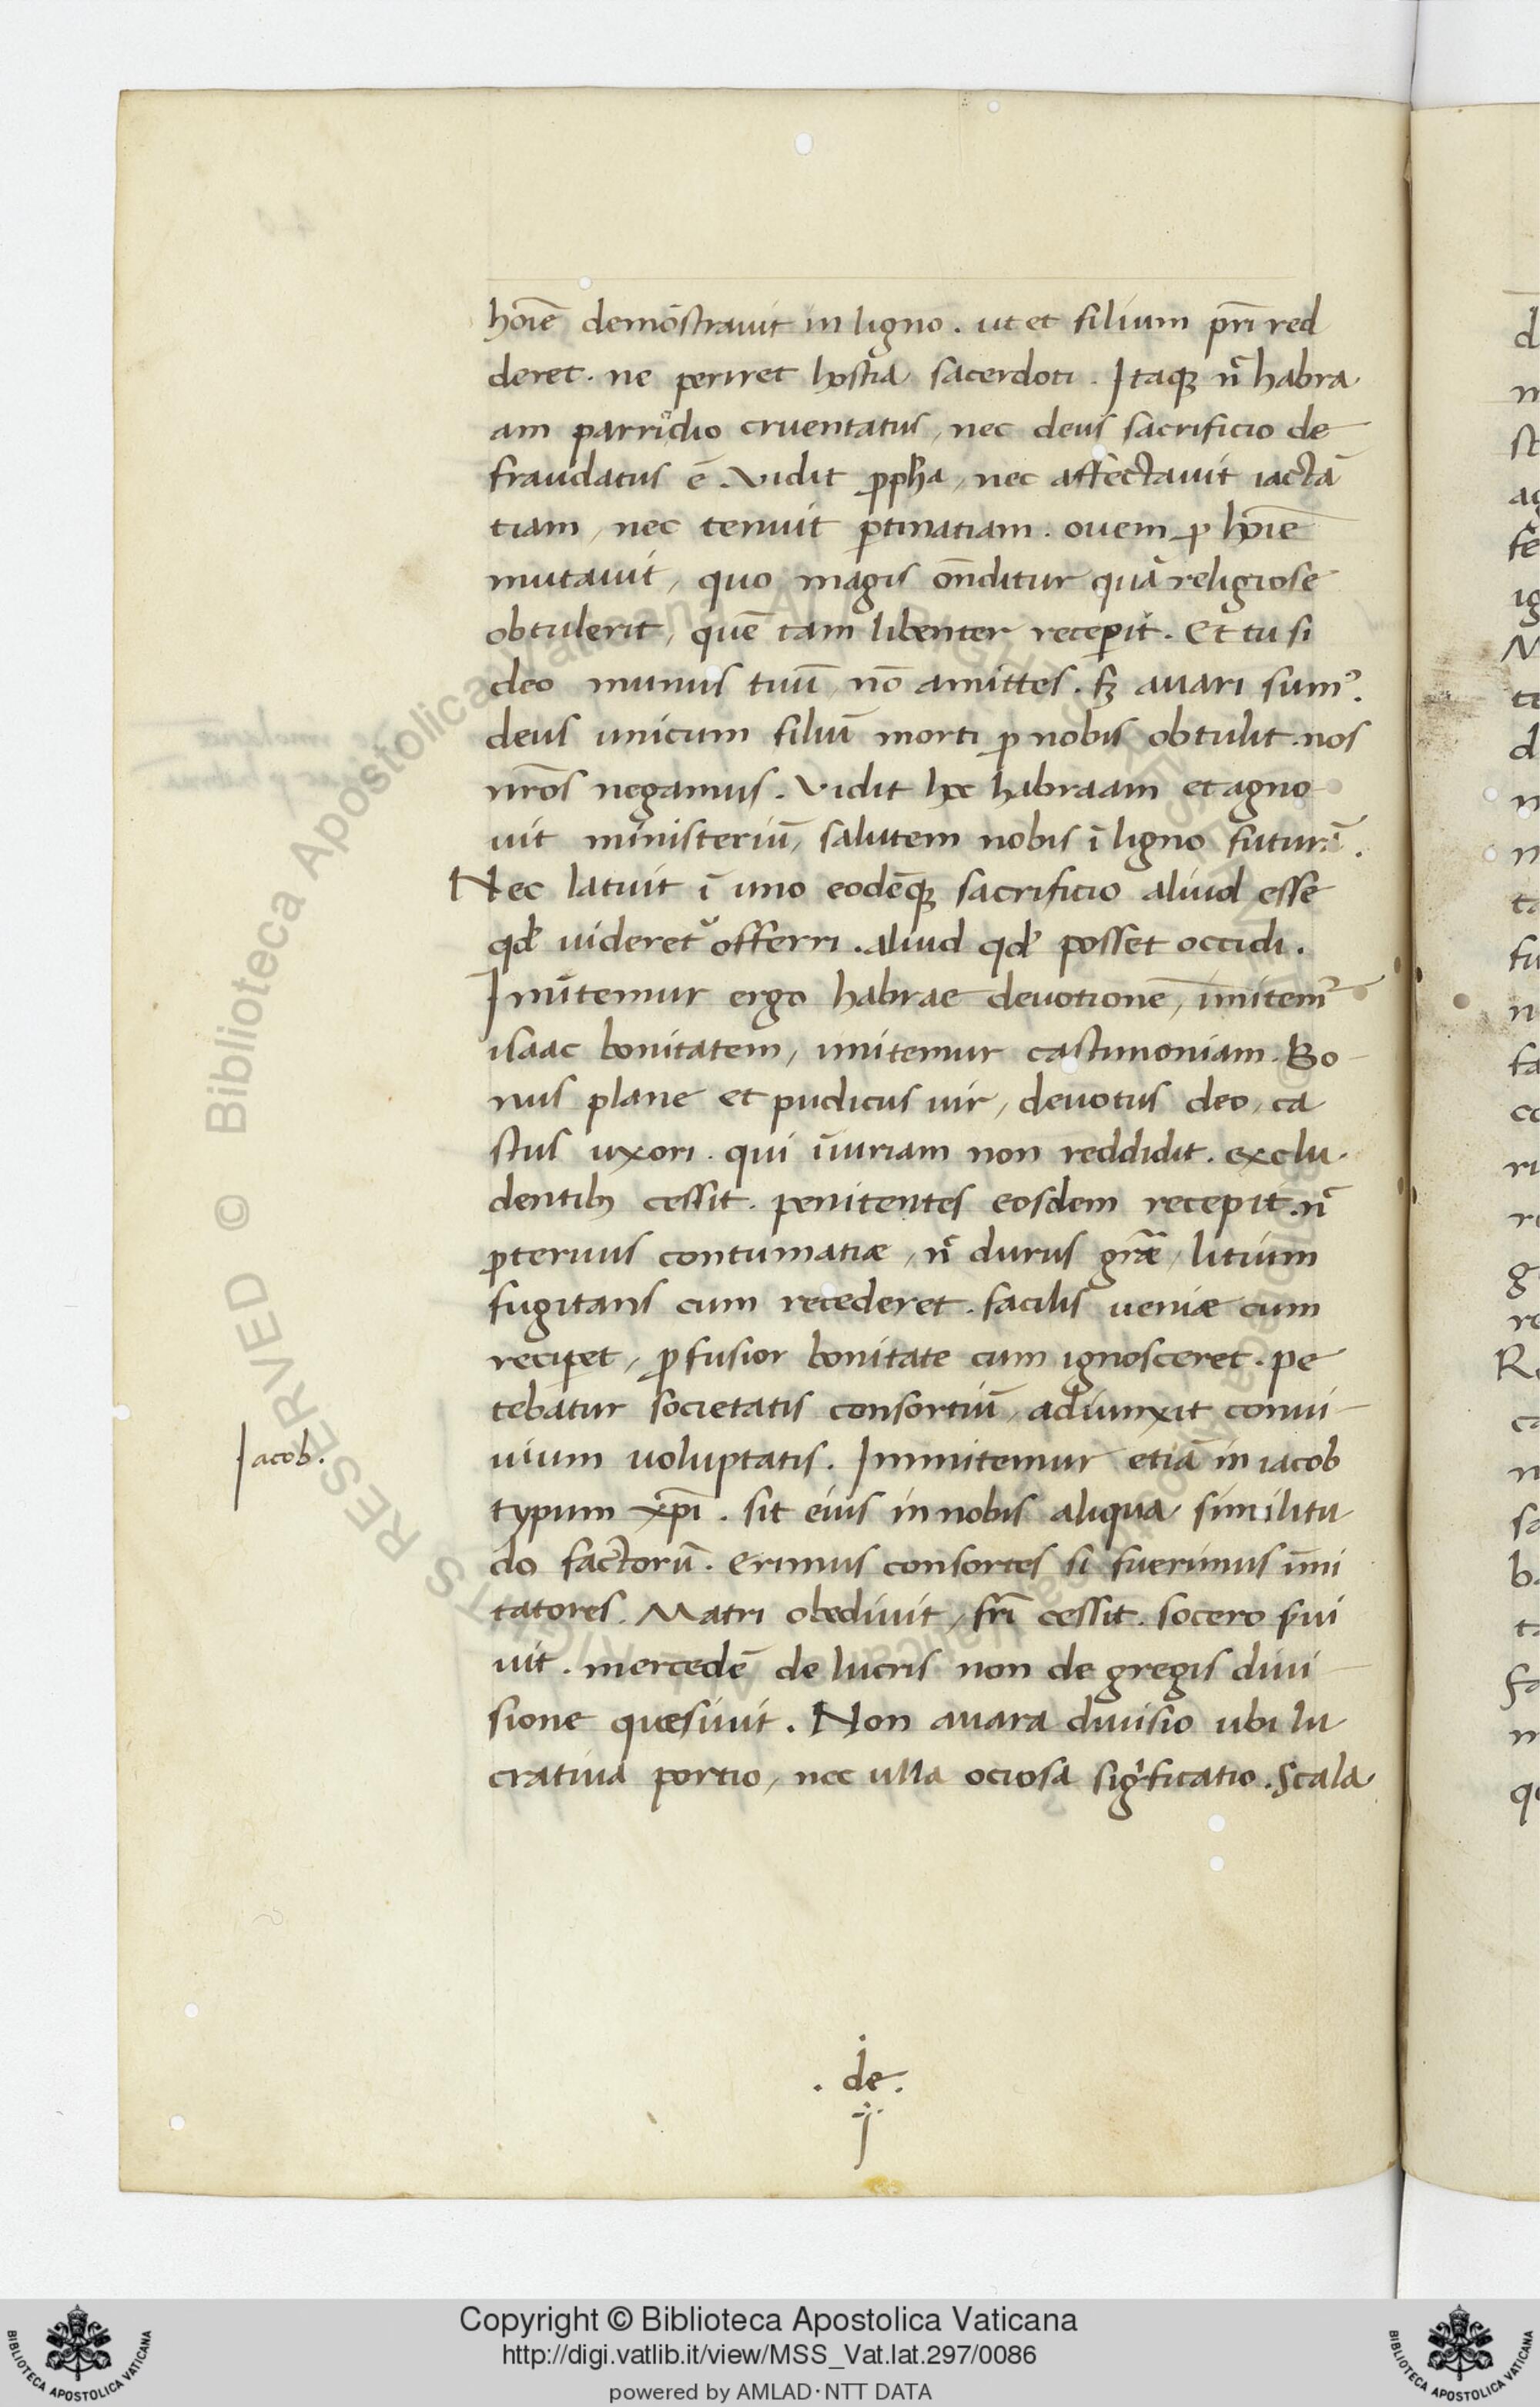 hoı̄e demōstrauit in ligno . ut et filium pr̄i red
deret . ne periret hostia sacerdoti . Itaqȝ n̄ habra
am parricidio cruentatus, nec deus sacrificio de
fraudatus ē . vidit ꝓph̄a, nec affectauit iactā
tiam, nec tenuit ꝑtinatiam . ouem ꝓ hoı̄e
mutauit, quo magis on̄ditur quā religiose
obtulerit, quē tam libenter recepit . Et tu si
deo munus tuū, nō amittes . sȝ auari sumꝰ.
deus unicum filiū morti ꝓ nobis obtulit . nos
nr̄os negamus . vidit hec habraam et agno
uit ministeriū, salutem nobis ī ligno futurā .
Nec latuit ī uno eodēqȝ sacrificio aliud esse
qd̓ uideret᷑ offerri . aliud qd̓ posset occidi .
Imitemur ergo habrae deuotionē, imitemꝰ
isaac bonitatem, imitemur castimoniam . Bo
nus plane et pudicus uir, deuotus deo, ca
stus uxori . qui ı̄iuriam non reddidit . exclu
dentibȝ cessit . penitentes eosdem recepit . n̄
ꝓteruus contumatiæ, n̄ durus gr̄æ, litium
fugitans cum recederet . facilis ueniæ cum
recipet, ꝓfusior bonitate cum ignosceret . pe
tebatur societatis consortiū, adiunxit conui
uium uoluptatis . Immitemur etiā in iacob
typum xp̄ı . sit eius in nobis aliqua similitu
do factorū . Erimus consortes si fuerimus īmi
tatores . Matri obediuit, fr̄i cessit . socero ẜui
uit . mercedē de lucris non de gregis diui
sione quesiuit . Non auara diuisio ubi lu
cratiua portio, nec ulla ociosa sigīficatio . Scala
Iacob.
. de .
Copyright © Biblioteca Apostolica Vaticana
http://digi.vatlib.it/view/MSS_Vat.lat.297/0086
powered by AMLAD·NTT DATA
BIBLIOTECA APOSTOLICA VATICANA
BIBLIOTECA APOSTOLICA VATICANA